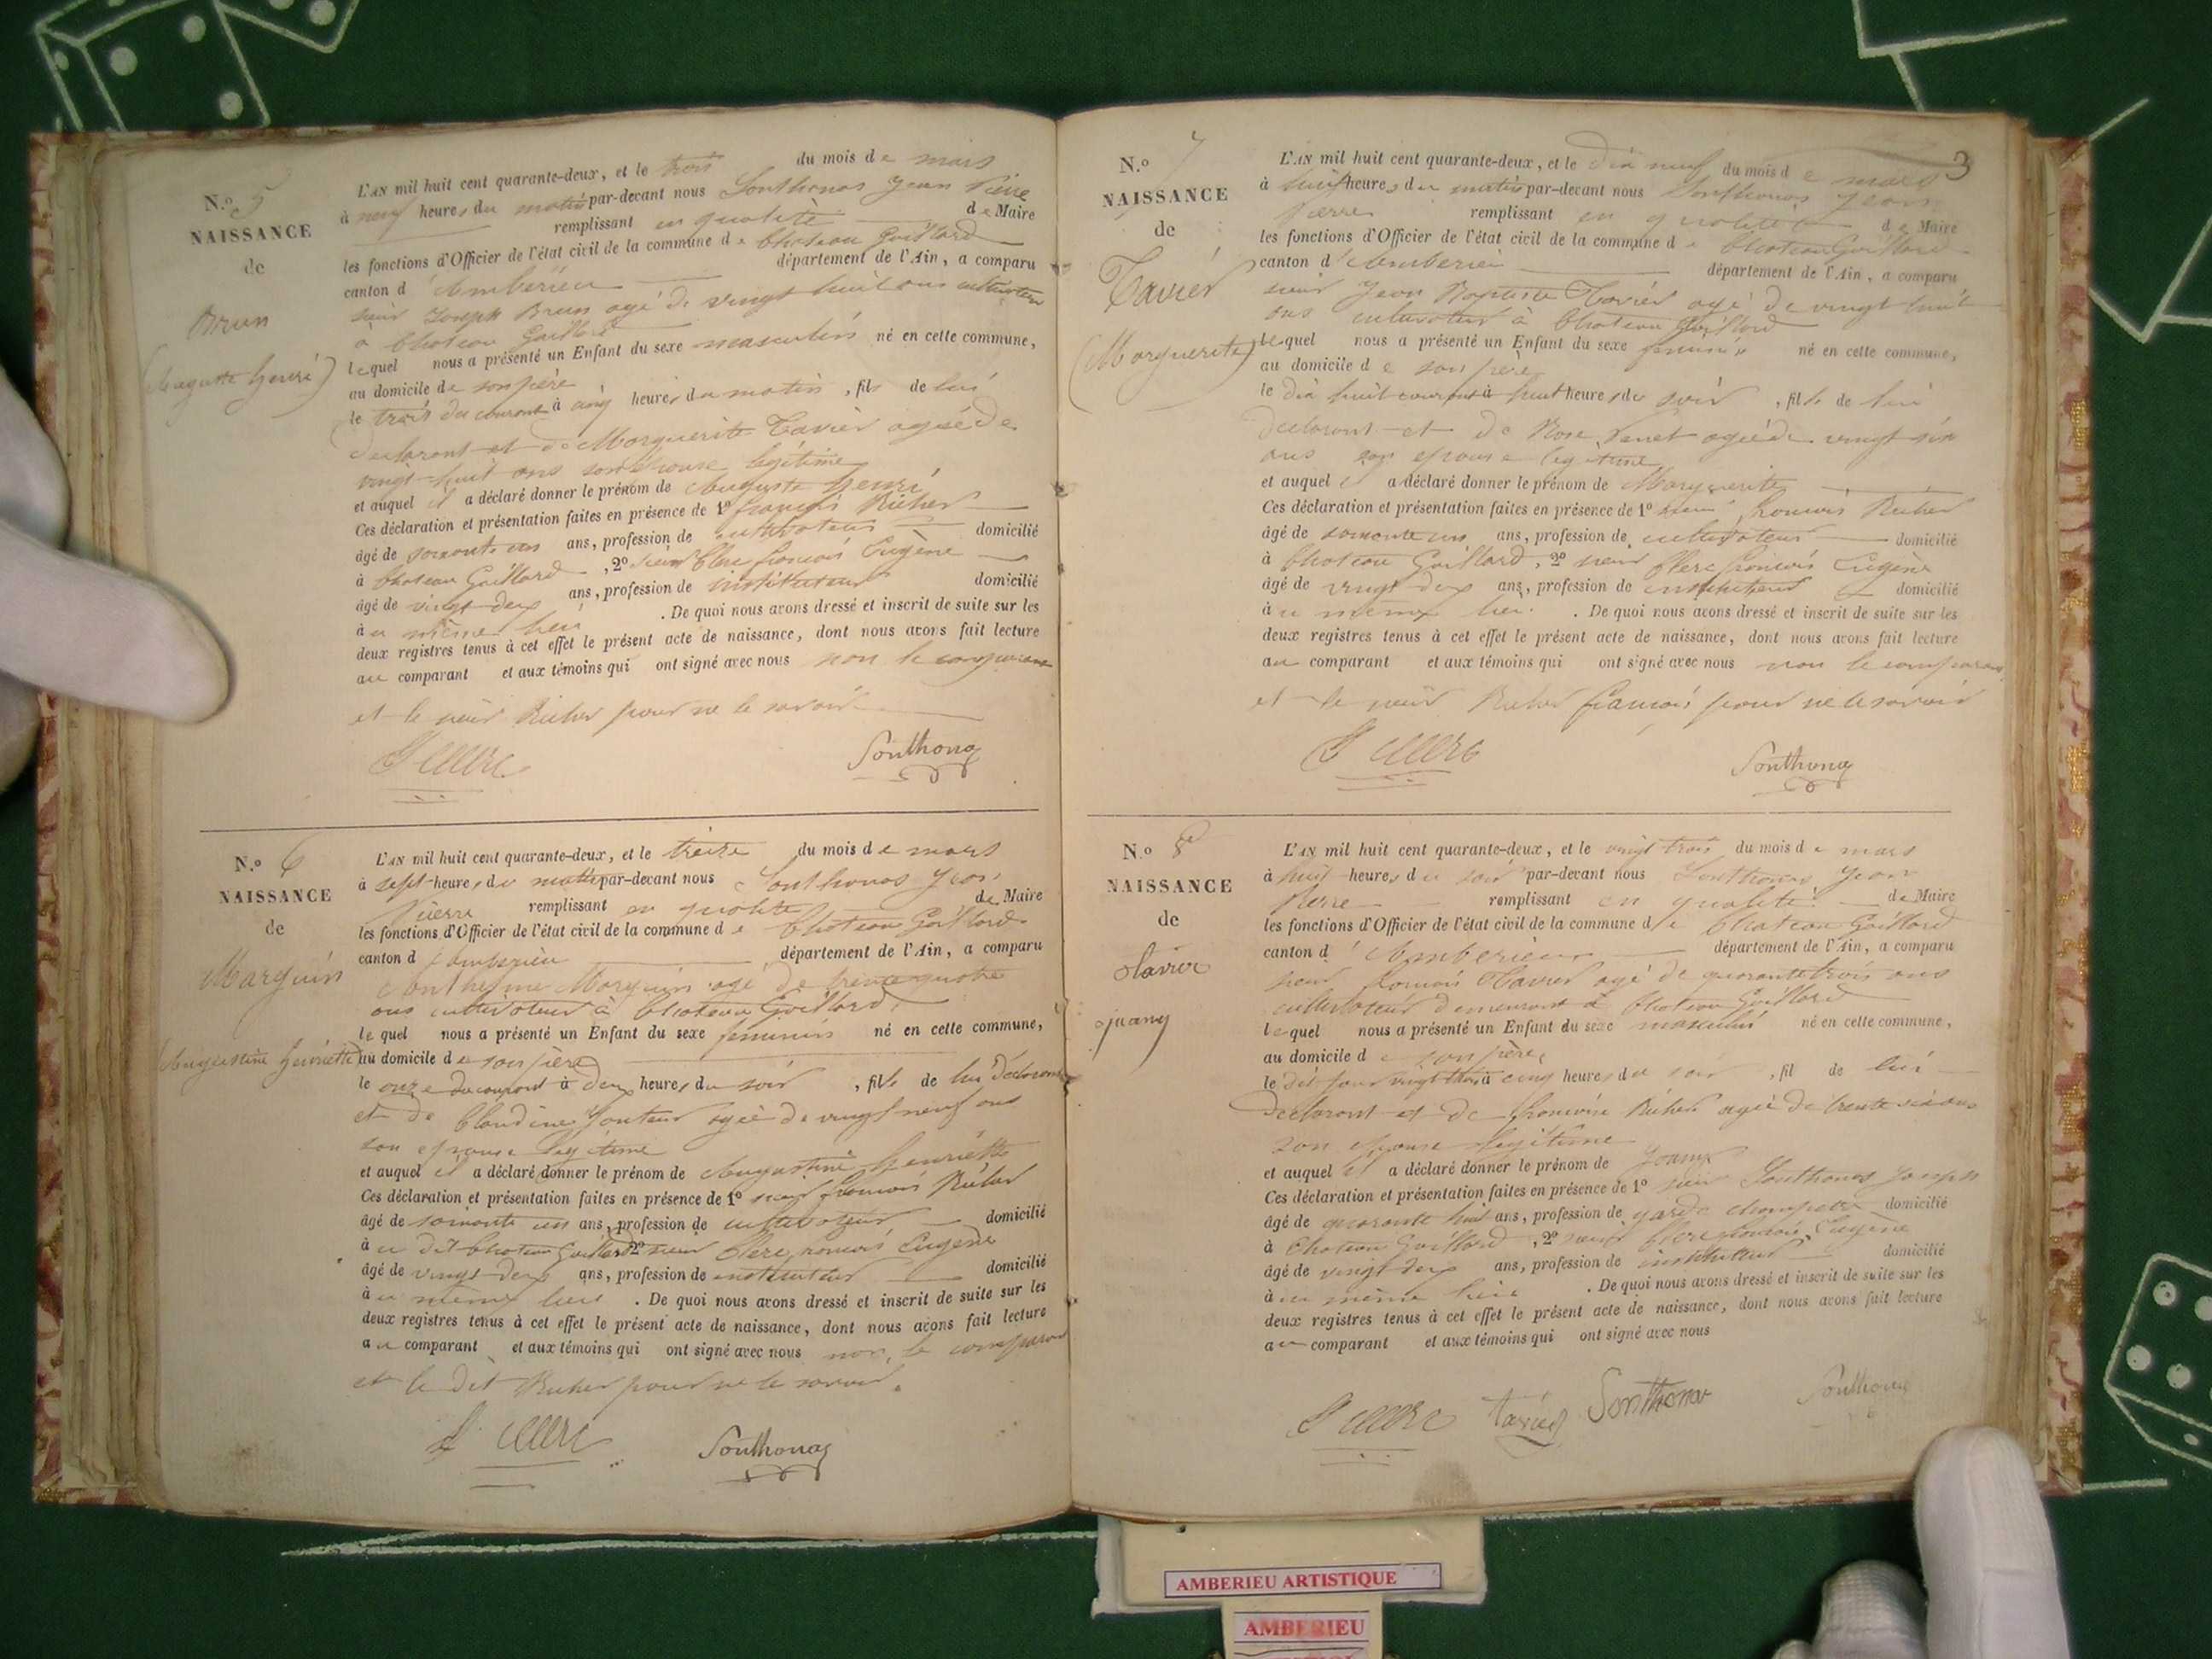 N.o 5
NAISSANCE
de
Brun
(Auguste henri)
L'AN mil huit cent quarante-deux, et le trois du mois de mars
à neuf heures du matin par-devant nous Sonthonas Jean Pierre
remplissant en qualité de Maire
les fonctions d'Officier de l'état civil de la commune de Chateau Gaillard
canton d'Ambérieu département de l'Ain, a comparu
sieur Joseph Brun agé de vingt huit ans cultivateur
à Chateau Gaillard
lequel nous a présenté un Enfant du sexe masculin né en cette commune,
au domicile de son père
le trois du courant à cinq heures du matin, fils de lui
declarant et de Marguerite Tavier agée de
vingt-huit ans son épouse legitime
et auquel il a déclaré donner le prénom de Auguste henri
Ces déclaration et présentation faites en présence de 1o françois Richer
âgé de soixante un ans, profession de cultivateur domicilié
à Chateau Gaillard, 2o sieur Clerc françois Eugène
âgé de vingt-deux ans, profession de instituteur domicilié
au même lieu. De quoi nous avons dressé et inscrit de suite sur les
deux registres tenus à cet effet le présent acte de naissance, dont nous avons fait lecture
au comparant et aux témoins qui ont signé avec nous non le comparant
et le sieur Richer pour ne le savoir
Clerc Sonthonas
N.o 6
NAISSANCE
de
Marguin
(Augustine henriette)
L'AN mil huit cent quarante-deux, et le treize du mois de mars
à sept heures du matin par-devant nous Sonthonas Jean
Pierre remplissant en qualité de Maire
les fonctions d'Officier de l'état civil de la commune de Chateau Gaillard
canton d'Amberieu département de l'Ain, a comparu
Anthelme Marguin agé de trente quatre
ans cultivateur à Chateau Gaillard
lequel nous a présenté un Enfant du sexe feminin né en cette commune,
au domicile de son père
le onze du courant à deux heures du soir, fille de lui declarant
et de Claudine agée de vingt neuf ans
son epouse legitime
et auquel il a déclaré donner le prénom de Augustine henriette
Ces déclaration et présentation faites en présence de 1o sieur francois Richer
âgé de soixante un ans, profession de cultivateur domicilié
au dit Chateau Gaillard 2o sieur Clerc francois Eugène
âgé de vingt-deux ans, profession de instituteur domicilié
au même lieu. De quoi nous avons dressé et inscrit de suite sur les
deux registres tenus à cet effet le présent acte de naissance, dont nous avons fait lecture
au comparant et aux témoins qui ont signé avec nous non le comparant
et le dit Richer pour ne le savoir.
Clerc Sonthonas
3
N.o 7
NAISSANCE
de
Tavier
(Marguerite)
L'AN mil huit cent quarante-deux, et le dix neuf du mois de mars
à huit heures du matin par-devant nous Sonthonas Jean
Pierre remplissant en qualité de Maire
les fonctions d'Officier de l'état civil de la commune de Chateau Gaillard
canton d'Amberieu département de l'Ain, a comparu
sieur Jean Baptiste Tavier agé de vingt huit
ans cultivateur à Chateau Gaillard
lequel nous a présenté un Enfant du sexe feminin né en cette commune,
au domicile de son père
le dix huit courant à huit heures du soir, fille de lui
declarant et de Rose agée de vingt six
ans son epouse legitime
et auquel il a déclaré donner le prénom de Marguerite
Ces déclaration et présentation faites en présence de 1o sieur francois Richer
âgé de soixante un ans, profession de cultivateur domicilié
à Chateau Gaillard, 2o sieur Clerc francois Eugène
âgé de vingt deux ans, profession de instituteur domicilié
au même lieu. De quoi nous avons dressé et inscrit de suite sur les
deux registres tenus à cet effet le présent acte de naissance, dont nous avons fait lecture
au comparant et aux témoins qui ont signé avec nous non le comparant
et le sieur Richer francois pour ne le savoir
Clerc Sonthonas
N.o 8
NAISSANCE
de
tavier
joany
L'AN mil huit cent quarante-deux, et le vingt trois du mois de mars
à huit heures du soir par-devant nous Sonthonas Jean
Pierre remplissant en qualité de Maire
les fonctions d'Officier de l'état civil de la commune de Chateau Gaillard
canton d'Amberieu département de l'Ain, a comparu
sieur francois Tavier agé de quarante trois ans
cultivateur demeurant à Chateau Gaillard
lequel nous a présenté un Enfant du sexe masculin né en cette commune,
au domicile de son père
le dit jour vingt trois à cinq heures du soir, fil de lui
declarant et de francoise Richer agée de trente six ans
son epouse legitime
et auquel il a déclaré donner le prénom de joany
Ces déclaration et présentation faites en présence de 1o sieur Sonthonas joseph
âgé de quarante huit ans, profession de garde champetre domicilié
à Chateau Gaillard, 2o sieur Clerc francois Eugène
âgé de vingt deux ans, profession de instituteur domicilié
au même lieu. De quoi nous avons dressé et inscrit de suite sur les
deux registres tenus à cet effet le présent acte de naissance, dont nous avons fait lecture
au comparant et aux témoins qui ont signé avec nous
Clerc tavier Sonthonax Sonthonas
AMBERIEU ARTISTIQUE
AMBERIEU